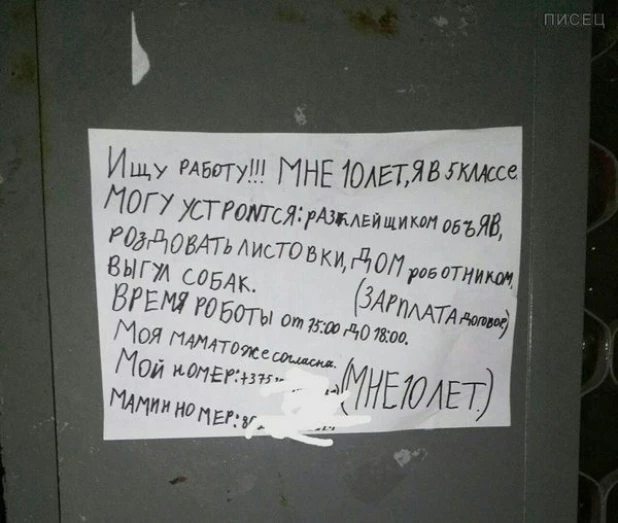 ПИСЕЦ
Ищу РАБОТУ!!! МНЕ 10 ЛЕТ, Я В 5 КЛАССЕ
МОГУ УСТРОИТСЯ: РАЗКЛЕЙЩИКОМ ОБЪЯВ,
РОЗДОВАТЬ ЛИСТОВКИ, ДОМ РОБОТНИКОМ,
ВЫГУЛ СОБАК. (ЗАРПЛАТА договор)
ВРЕМЯ РОБОТЫ от 15:00 ДО 18:00.
МОЯ МАМА ТОЖЕ согласна.
МОЙ НОМЕР: +375 (МНЕ 10 ЛЕТ.)
МАМИН НОМЕР: 8